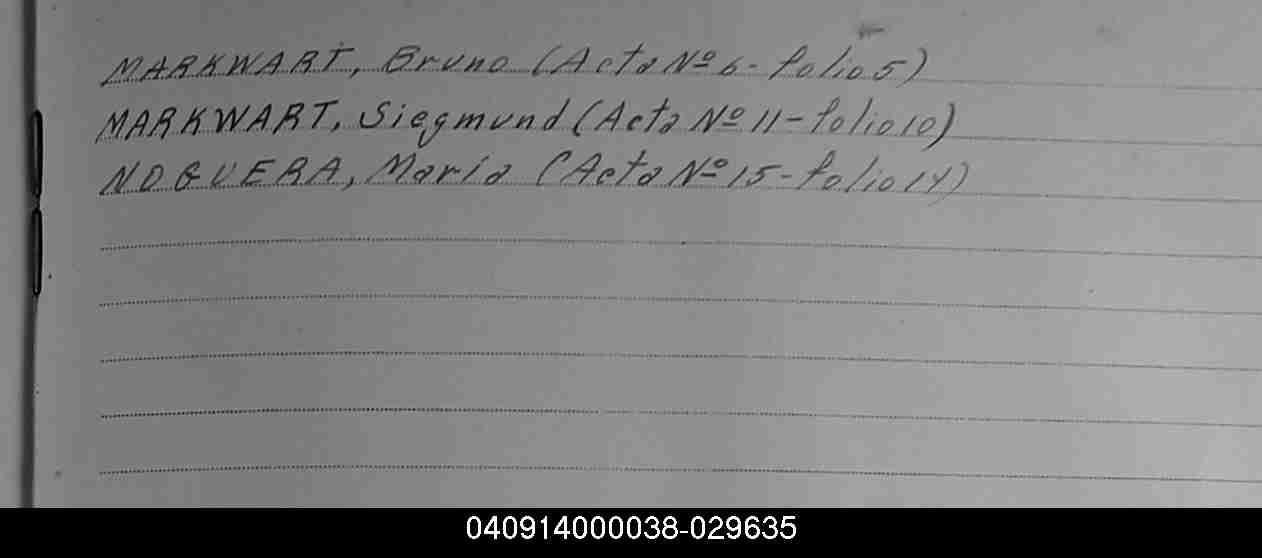 MARKWART, Bruno (Acta Nº 6 - folio 5)
MARKWART, Siegmund (Acta Nº 11 - folio 10)
NOGUERA, María (Acta Nº 15 - folio 14)
040914000038-029635